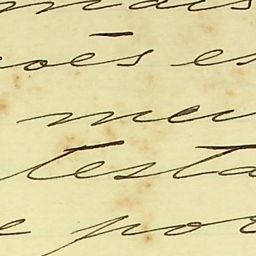 mais
ões es
meu
testa
e por